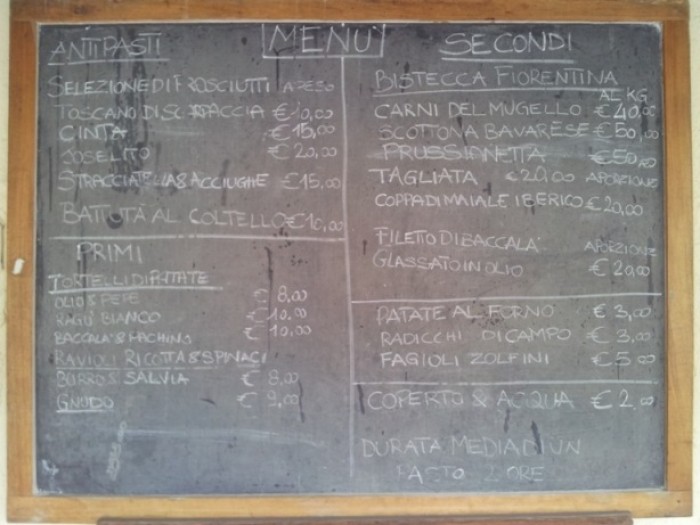 MENU
ANTIPASTI
SELEZIONE DI PROSCIUTTI A PESO
TOSCANO DI SCARPACCIA € 10,00
CINTA € 15,00
JOSELITO € 20,00
STRACCIATELLA & ACCIUGHE € 15,00
BATTUTA AL COLTELLO € 10,00
PRIMI
TORTELLI DI PATATE
OLIO & PEPE € 8,00
RAGÙ BIANCO € 10,00
BACCALÀ & € 10,00
RAVIOLI RICOTTA & SPINACI
BURRO & SALVIA € 8,00
GNUDO € 9,00
SECONDI
BISTECCA FIORENTINA
AL KG
CARNI DEL MUGELLO € 40,00
SCOTTONA BAVARESE € 50,00
PRUSSIANETTA € 50,00
TAGLIATA € 20,00 A PORZIONE
COPPA DI MAIALE IBERICO € 20,00
FILETO DI BACCALA' A PORZIONE
GLASSATO IN OLIO € 20,00
PATATE AL FORNO € 3,00
RADICCHI DI CAMPO € 3,00
FAGIOLI ZOLFINI € 5,00
COPERTO & ACQUA € 2,00
DURATA MEDIA DI UN
PASTO 2 ORE